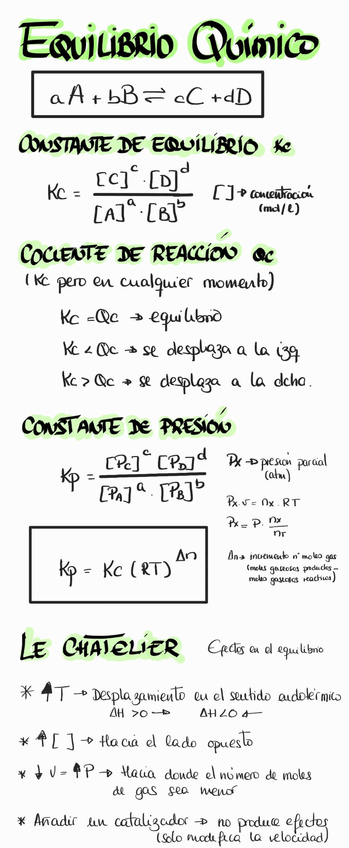 EQUILIBRIO QUÍMICO
aA + bB ⇌ cC + dD
CONSTANTE DE EQUILÍBRIO Kc
Kc = [C]^c · [D]^d / [A]^a · [B]^b
[ ] → concentración
(mol/l)
COCIENTE DE REACCIÓN Qc
(Kc pero en cualquier momento)
Kc = Qc → equilibrio
Kc < Qc → se desplaza a la izq
Kc > Qc → se desplaza a la dcha.
CONSTANTE DE PRESIÓN
Kp = [Pc]^c [PD]^d / [PA]^a · [PB]^b
Px → presión parcial
(atm)
Px · v = nx · RT
Px = P · nx / nT
Kp = Kc (RT)^Δn
Δn → incremento nº moles gas
(moles gaseosos productos -
moles gaseosos reactivos)
LE CHATELIER
Efectos en el equilibrio
* ↑T → Desplazamiento en el sentido endotérmico
ΔH > 0 → ΔH < 0 ←
* ↑[ ] → Hacia el lado opuesto
* ↓ V = ↑P → Hacia donde el número de moles
de gas sea menor
* Añadir un catalizador → no produce efectos
(solo modifica la velocidad)